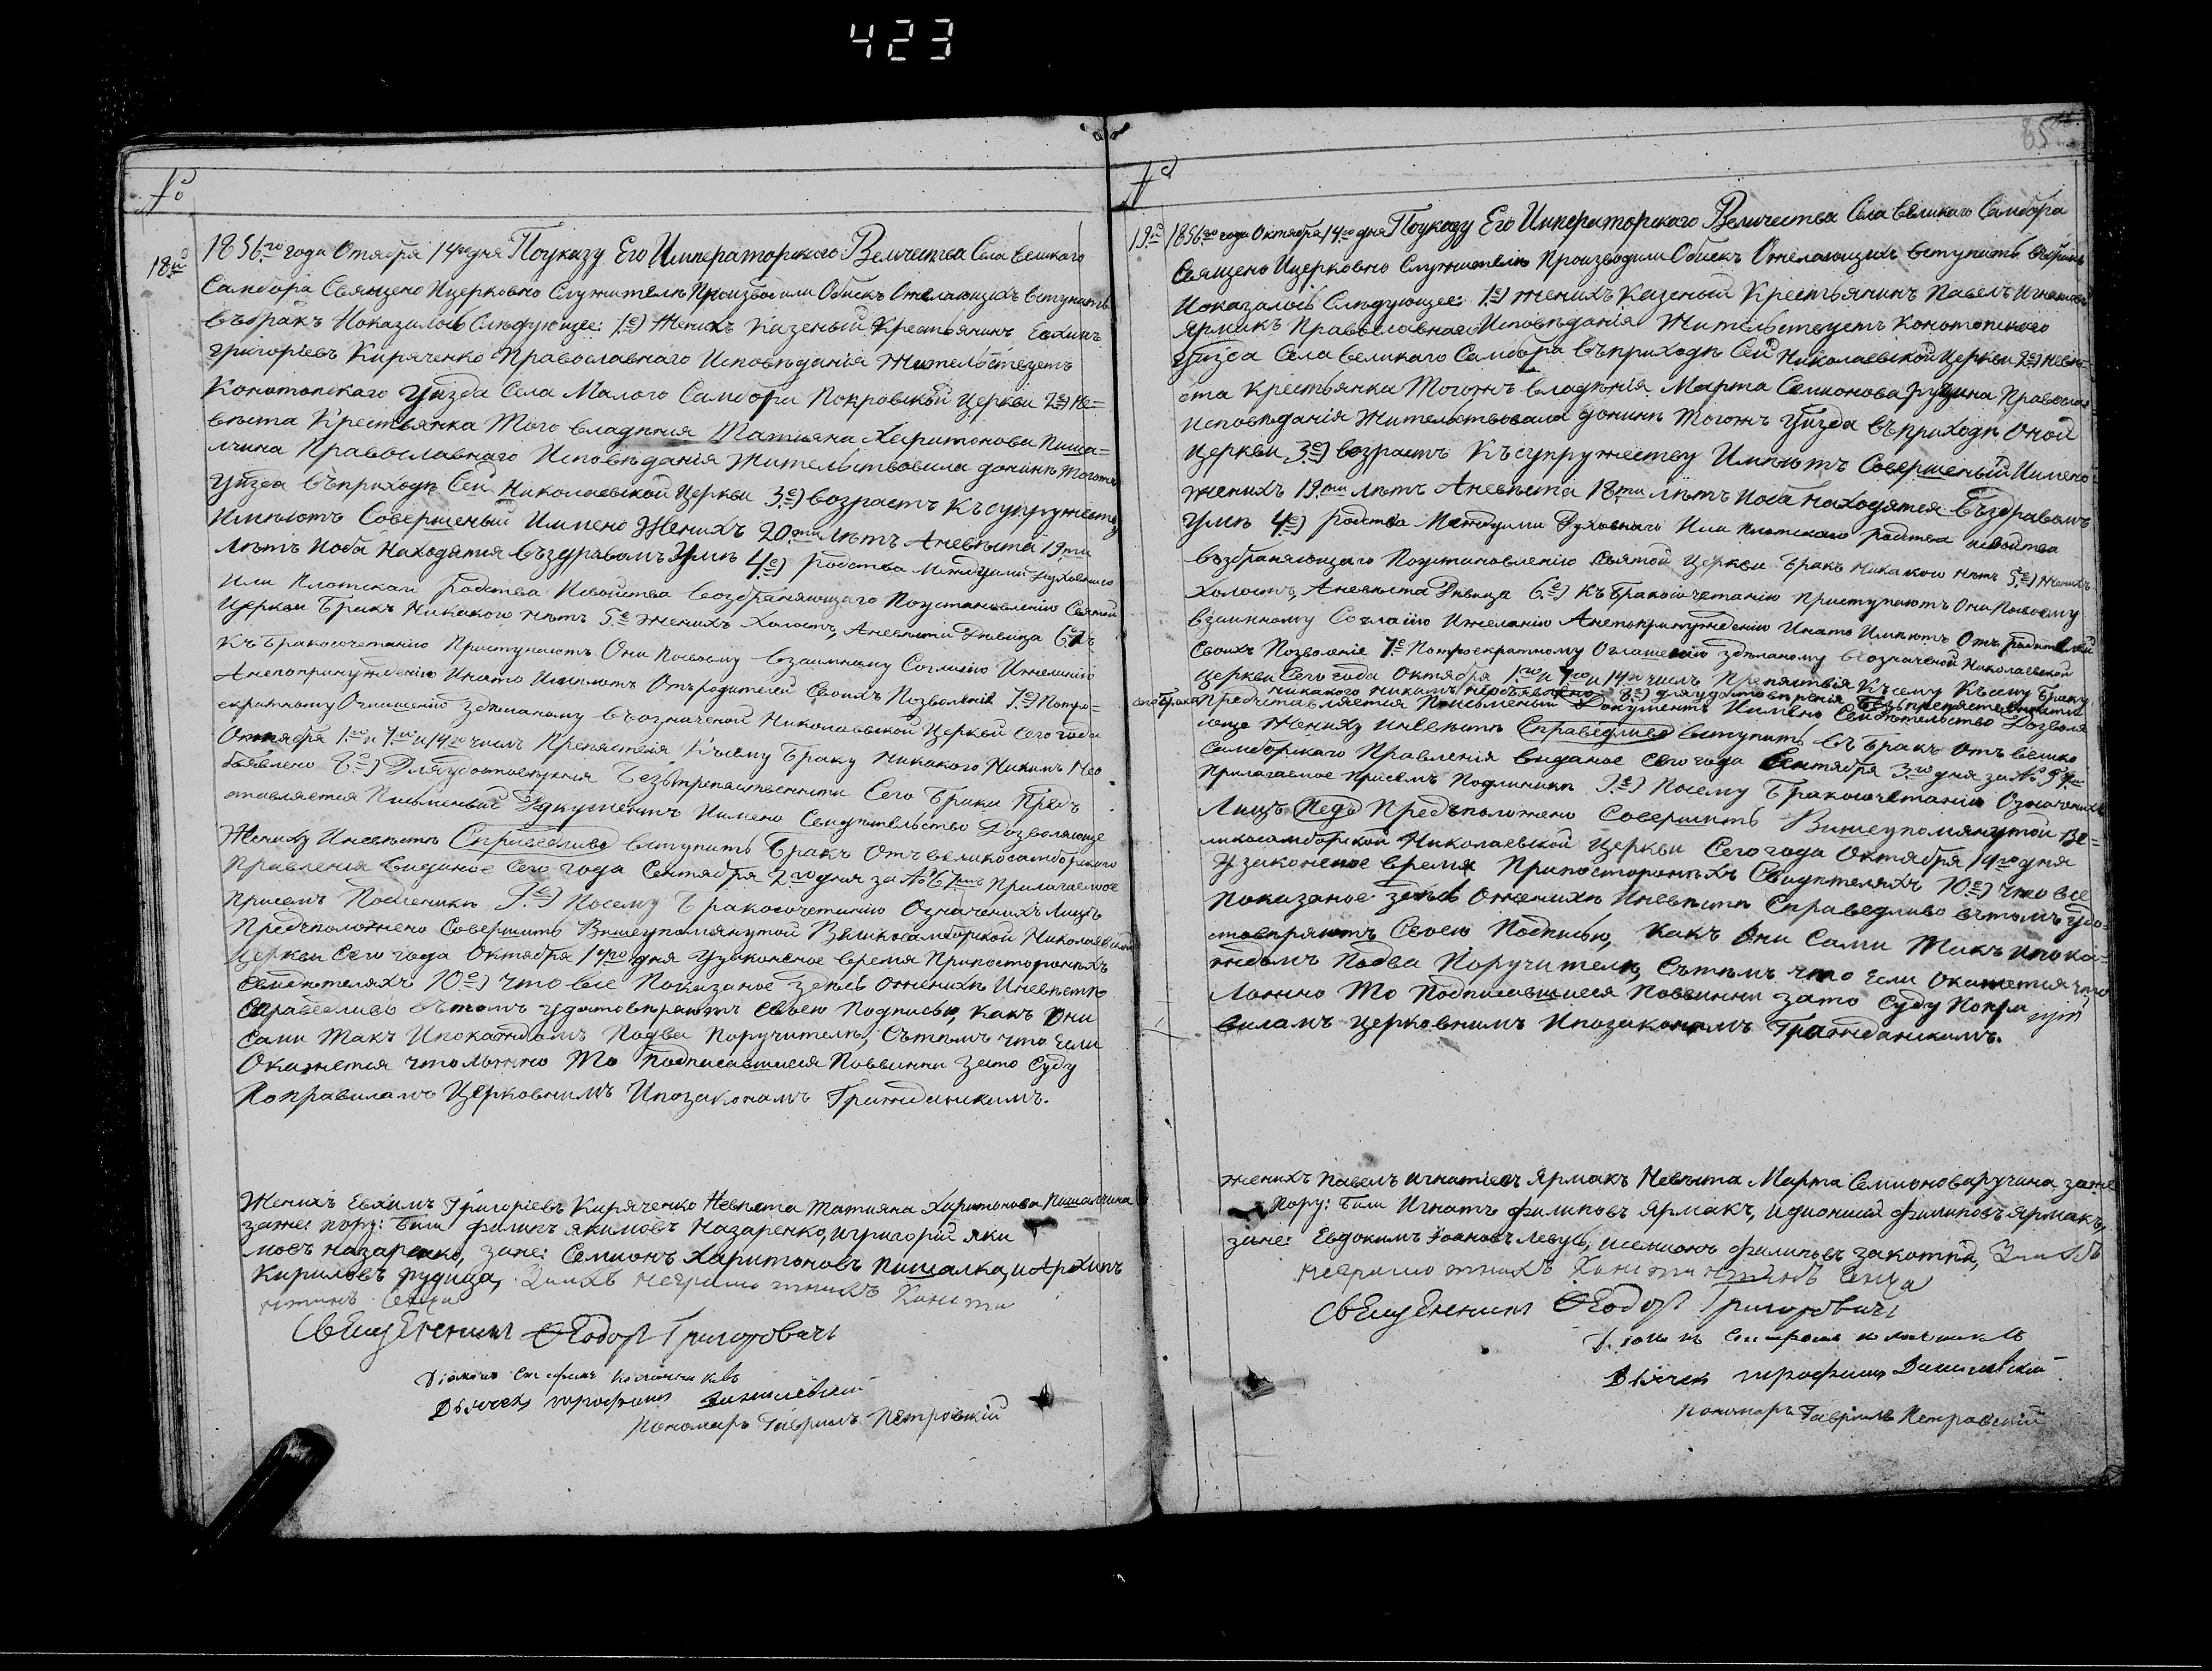 423
85
№
18й
1856го года Отября 14го дня Поуказу Его Императорского Величества Села Великаго
Самбора Священо Ицерковно Служителѣ Производили Обискъ Ожелающихъ Вступить
Въбракъ Ноказалось Слѣдующее: 1е) Женихъ Казеный Крестьянинъ Евхимъ
Григоріевъ Киряченко Православнаго Исповѣданія Жительствуетъ
Конотопскаго Уѣзда Села Малого Самбора Покровской Церкви 2е) Не=
вѣста Крестьянка Того владѣнія Татияна Харитонова Пиша=
лчина Православнаго Исповѣданія Жительствовала донинѣ Тогожъ
Уѣзда Въприходѣ Сей Николаевской Церкви 3е) возрастъ Късупружеству
Имѣютъ Совершеный Имено Женихъ 20ти Лѣтъ Аневѣста 19ти
Лѣтъ Иоба Находятся Въздравомъ Умѣ 4е) Родства Междуими Духовнаго
Или Плотскаго Родства Исвойства Возбраняющаго Поустановленію Святой
Церкви Бракъ Никакого нѣтъ 5е Женихъ Холостъ, Аневѣста Дѣвица 6е)
Къ Бракосочетанію Приступаютъ Они Посвоему Взаимному Согласію Ижеланію
Анепопринужденію Инато Имѣютъ Отъродителей Своихъ Позволеніе 7е) Потро=
екратному Оглашенію Здѣланому Въозначеной Николаевской Церкви Сего года
Октября 1го и 7го и 14го числъ Препяствія Късему Браку Никакого Никимъ Нео
бъявлено 8е) Дляудостовѣренія Безъпрепяственности Сего Брака Предъ
ставляется Письменый Документъ Имено Свидѣтельство Дозволяюще
Жениху Иневѣстѣ Справедливо вступить Бракъ Отъвеликосамборскаго
Правленія Виданое Сего года Сентября 2го дня за № 67мъ Прилагаемое
Присемъ Подленикѣ 9е) Посему Бракосочетанію Означенихъ Лицъ
Предъположено Совершить Вишеупомянутой Великосамборской Николаевской
Церкви Сего года Октября 14го дня Узаконеное время Припосторонъхъ
Свидѣтеляхъ 10е) что все Показаное здѣсь Оженихѣ Иневѣстѣ
Справедливо Вътомъ удостовѣряютъ Своею Подписью, Какъ Они
Сами Такъ Ипокаждомъ Подва Поручителѣ, Сътѣмъ что Если
Окажется чтоложно То Подписавшиеся Повинни Зато Суду
Поправиламъ Церковнимъ Ипозаконамъ Гражданскимъ.
Женихъ Евхимъ Григоріевъ Киряченко Невѣста Татияна Харитонова Пишалчина
зажен: пору: Били Филипъ Якимовъ Назаренко, игригорій Яки
мовъ Назаренко, зане: Семионъ Харитоновъ Пишалка, и Архипъ
Кириловъ Рудица,
Священникъ Ѳеодоръ Григоровичъ
Дячекъ Трофимъ Данилевскій
Пономарь Гавріилъ Петровскій
№
19й
1856го года Октября 14го дня Поуказу Его Императорскаго Величества Села Великаго Самбора
Священо Ицерковно Служителѣ Производили Обискъ Ожелающихъ Вступить Вбракъ
Ноказалось Слѣдующее: 1е) Женихъ Казеный Крестьянинъ Павелъ Игнатіевъ
Ярмакъ Православнаго Исповѣданія Жительствуетъ Конотопскаго
Уѣзда Села Великаго Самбора Въприходѣ Сей Николаевской Церкви 2е) Невѣ=
ста Крестьянка Тогожъ Владѣнія Марта Семионова Ручина Православ
Исповѣданія Жительствовала донинѣ Тогожъ Уѣзда Въприходѣ Оной
Церкви 3е) возрастъ Късупружеству Имѣютъ Совершеный Имено
Женихъ 19ти Лѣтъ Аневѣста 18ти Лѣтъ Иоба Находятся Въздравомъ
Умѣ 4е) Родства Междуими Духовнаго Или Плотскаго Родства исвойства
Възбраняющаго Поустановленію Святой Церкви Бракъ Никакого нѣтъ 5е) Женихъ
Холостъ, Аневѣста Дѣвица 6е) Къ Бракосочетанію Приступаютъ Они Посвоему
Взаимному Согласію Ижеланію Анепопринужденію Инато Имѣютъ Отъ Родителей
Своихъ Позволеніе 7е Потроекратному Оглашенію Здѣланому Въозначеной Николаевской
Церкви Сего года Октября 1го и 7го и 14го числъ Препяствія Късему Късему Браку
никакого никимъ необъявлено 8е) дляудостовѣренія Безъпрепяственности
сего брака Предъставляется Письменый Документъ Имено Свидѣтельство Дозволя
юще Жениху Иневѣстѣ Справедливо Вступить Въ Бракъ Отъ Велико
Самборскаго Правленія Виданое Сего года Сентября 3го дня за №
Прилагаемое Присемъ Подлиникѣ 9е) Посему Бракосочетанію Означенихъ
Лицъ Педъ Предъположено Совершить Вишеупомянутой Ве=
ликосамборской Николаевской Церкви Сего года Октября 14го дня
Узаконеное время Припосторонъхъ Свидѣтеляхъ 10е) Что все
Показаное здѣсь Оженихѣ Иневѣстѣ Справедливо Вътомъ удо=
стовѣряютъ Своею Подписью, Какъ Они Сами Такъ Ипока=
ждомъ Подва Поручителѣ, Сътѣмъ что Если Окажется что
Ложно То Подписавшиеся Повинни зато Суду Попра
виламъ Церковнимъ Ипозаконамъ Гражданскимъ.
Женихъ Павелъ Игнатіевъ Ярмакъ Невѣста Марта Семионова ручина, заже
Пору: Били Игнатъ Филиповъ Ярмакъ, идионисій Филиповъ Ярмакъ,
зане: Евдокимъ Іоановъ Левусъ, исемионъ Филиповъ Закотній,
Священникъ Ѳеодоръ Григоровичъ
Дячекъ Трофимъ Данилевскій
Пономарь Гавріилъ Петровскій